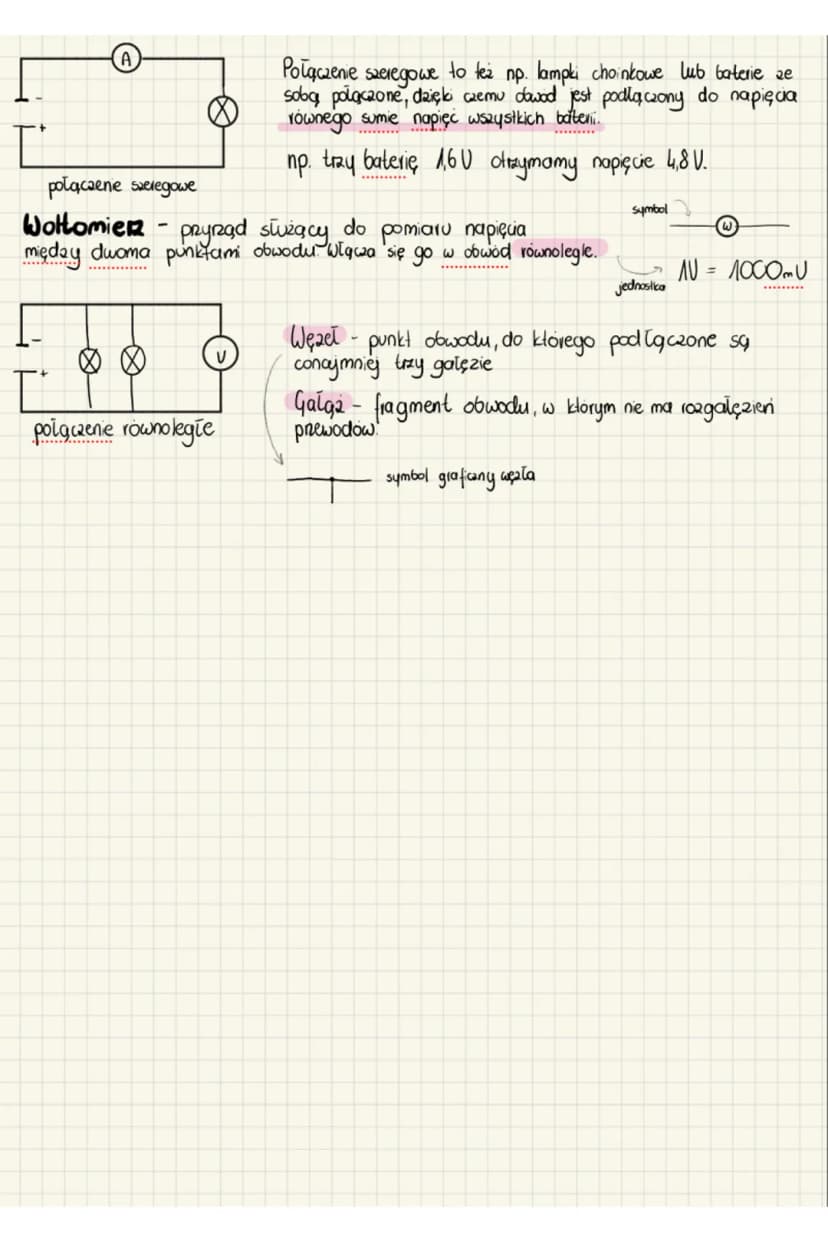 A
- 
+
Połączenie szeregowe to też np. lampki choinkowe lub baterie ze
sobą połączone, dzięki czemu obwód jest podłączony do napięcia
równego sumie napięć wszystkich baterii.
np. trzy baterię 1,6 V otrzymamy napięcie 4,8 V.
połączenie szeregowe
Woltomierz - przyrząd służący do pomiaru napięcia
między dwoma punktami obwodu. Włącza się go w obwód równolegle.
symbol
W
jednostka
1V = 1000mV
-
+
V
połączenie równoległe
Węzeł - punkt obwodu, do którego podłączone są
conajmniej trzy gałęzie
Gałąź - fragment obwodu, w którym nie ma rozgałęzień
przewodów.
symbol graficzny węzła